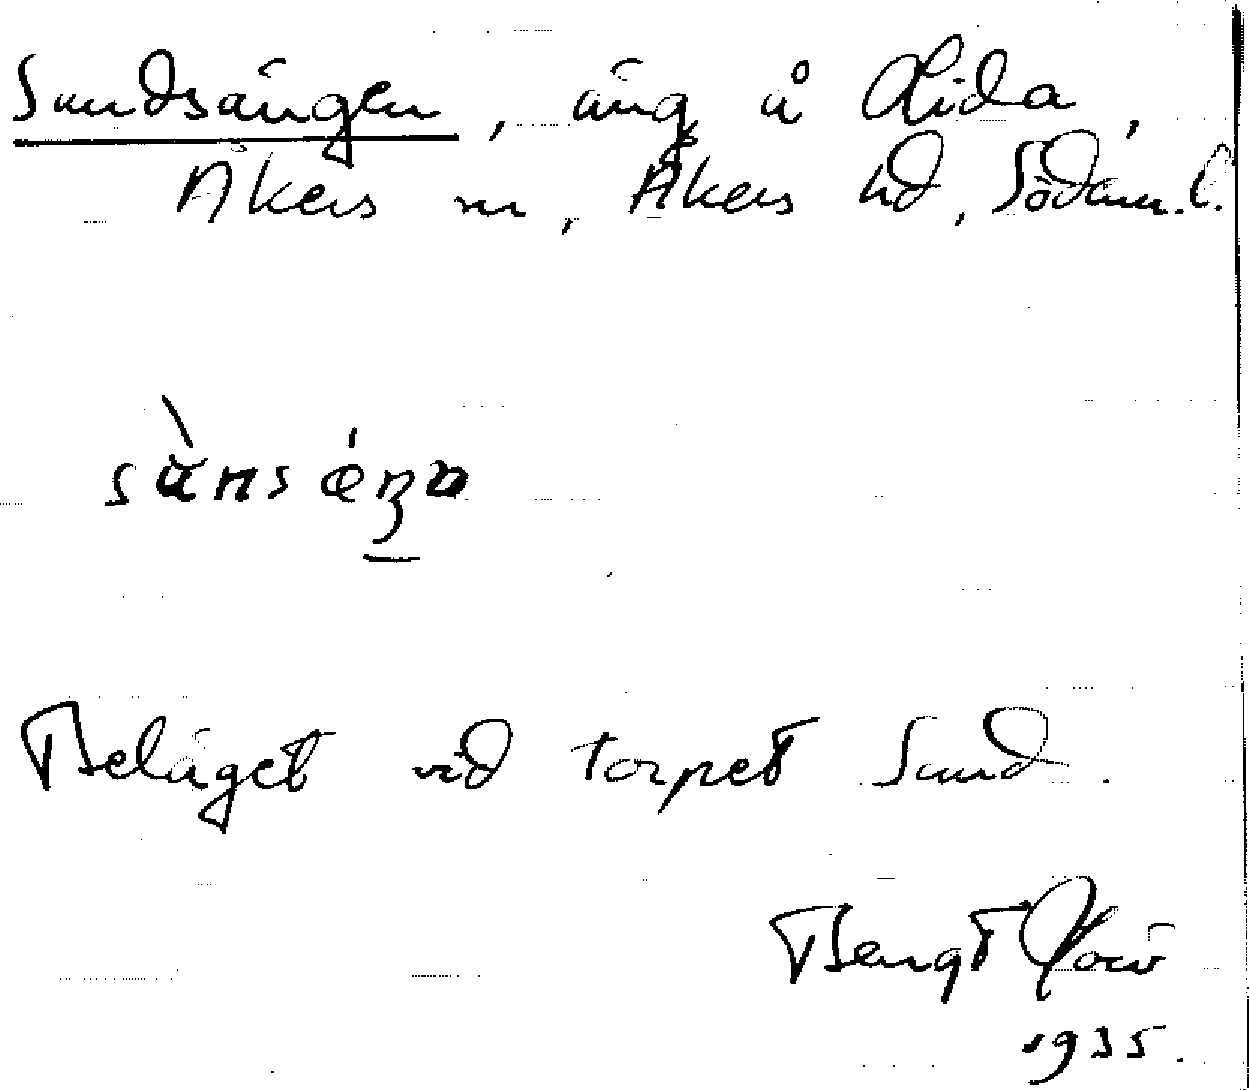 Sundsängen, äng å Lida,
Åkers sn, Åkers hd, Söderm. l.
Beläget vid torpet Sund.
Bengt
1935.